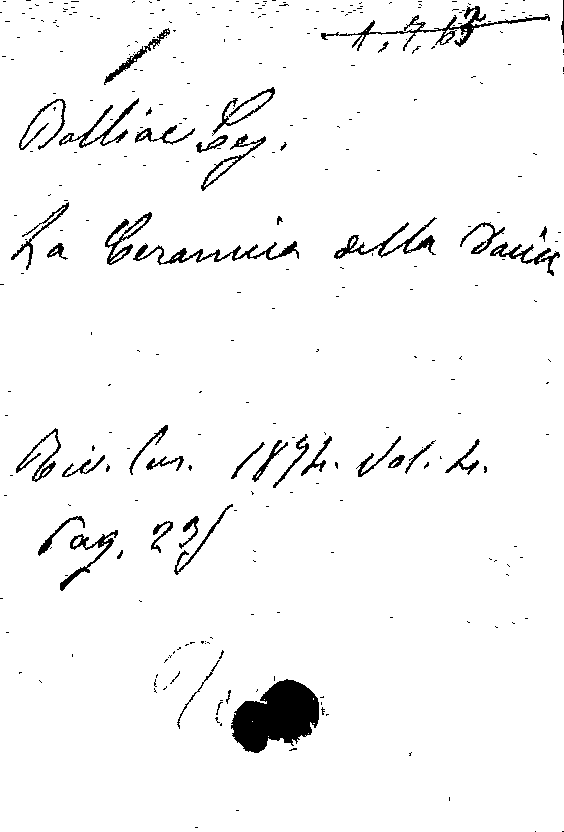 Bolliac Cej.
La Ceramica della Dacia
Riv. Eur. 1874. Vol. 4.
Pag. 235